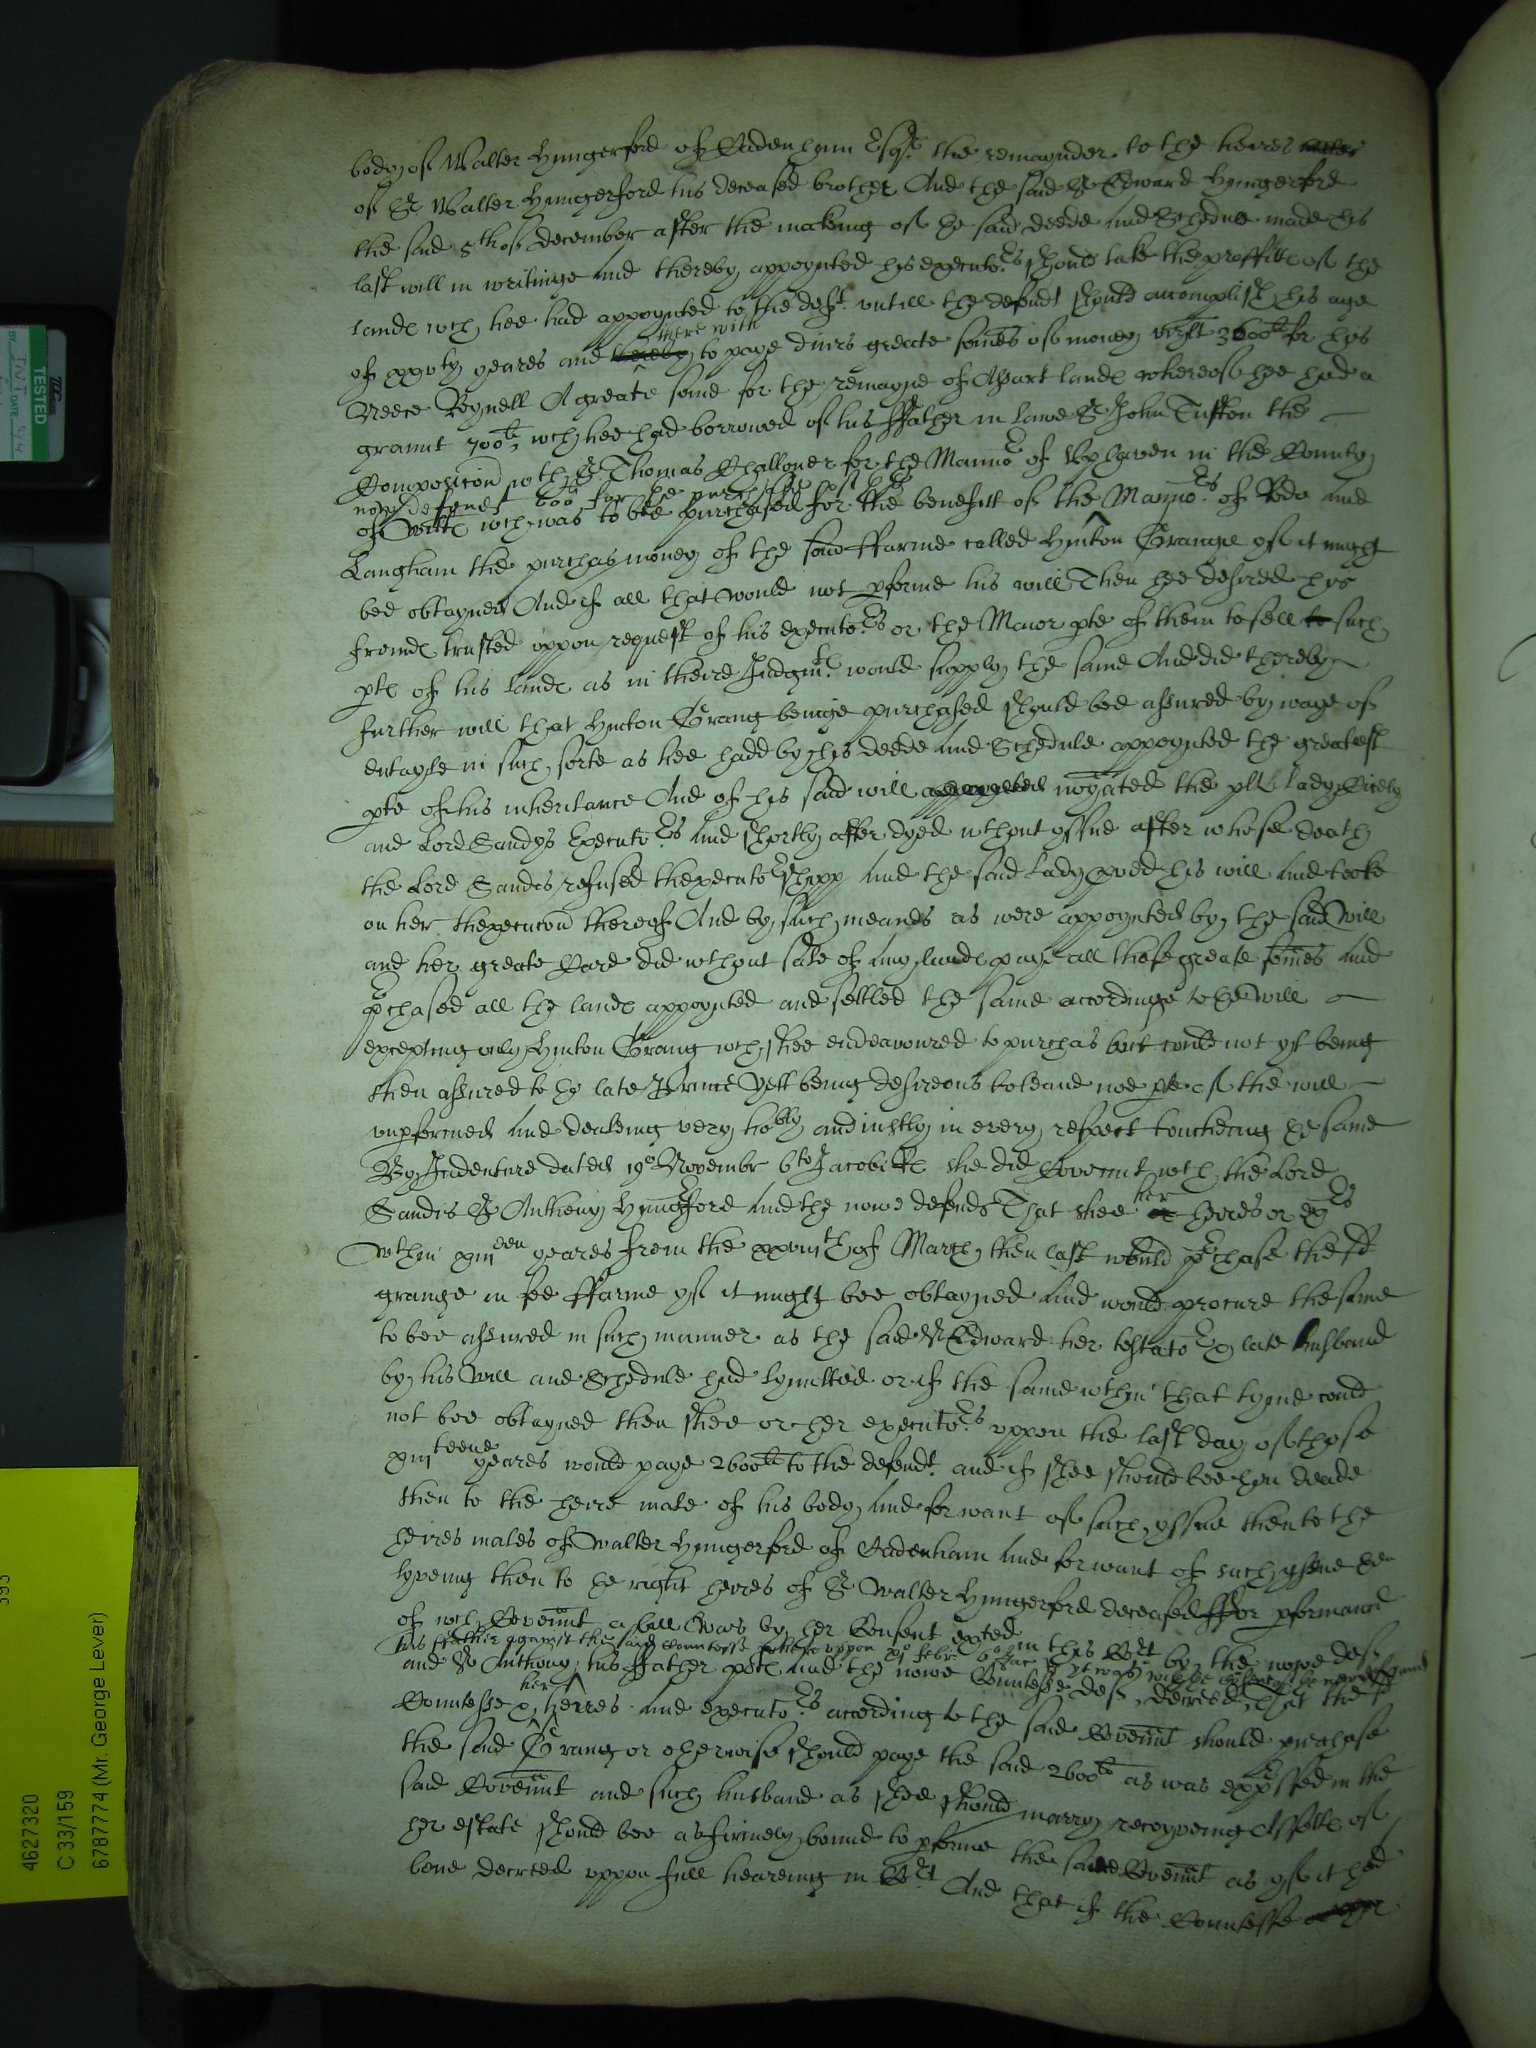 body of Walter Hungerford of Cadenham Esqr. the remaynder to the heires
of Sr Walter Hungerford his deceased brother And the said Sr Edward Hungerford
the said 5th of December after the making of the said deede and Schedule made his
last will in writinge and thereby appoynted his executors should take the proffitts of the
lands wch hee had appoynted to the deft. untill the defendt should accomplish his age
of xxvty yeares and thereby there with to paye divers greate somes of money vizt 3600li for his
Neece Bynell A greate some for the remayne of Assart lands whereof hee had a
graunt 700li wch hee had borrowed of his ffather in lawe Sr John Tufton the
Composicon wth Sr Thomas Challoner for the Mannor of Uphaven in the County
now defendt 600li for the purchase of the
of Wilts wch was to bee purchased for the benefitt of the Mannors of Rodo and
Langham the purchas money of the said ffarme called Hinton Grange yf it might
bee obtayned And if all that would not pforme his will Then hee desired his
freinds trusted uppon request of his executors or the Maior pte of them to sell to such
pte of his lands as in theire Judgmts. would supply the same And did thereby
further will that Hinton Grang beinge purchased should bee assured by waye of
entayle in such sorte as hee hadd by his deede and Schedule appoynted the greatest
pte of his inheritance And of his said will appoynted noiated the plt Lady Cicely
and Lord Sandys Executors and shortly after dyed without yssue after whose death
the Lord Sandis refused thexecutorshipp and the said Lady proved his will and tooke
on her thexecucon thereof And by such meanes as were appoynted by the said Will
and her greate Care did wthout sale of any lands paye all those greate somes and
pchased all the lands appoynted and setled the same accordinge to the will
excepting only Hinton Grang wch shee endeavoured to purchas but could not yt being
then assured to the late Prince Yett being desireous to leave noe pte of the will
unpformed and dealeing very nobly and justly in every respect toucheing the same
By Indenture dated 19o Novembr 6to Jacobi Rs she did Covennt wth the Lord
Sandis Sr Anthony Hungerford and the nowe defendt That shee or her heires or exrs
Wthin xviiien yeares from the xxviiith of March then last would pchase the sd
grange in fee ffarme yf it might bee obtayned and would procure the same
to bee assured in such manner as the said Sr Edward her testator & late husband
by his Will and Schedule had lymitted or if the same wthin that tyme could
not bee obtayned then shee or her executors uppon the last day of those
xviiiteene yeares would paye 2600li to the defendt. and if shee should bee then deade
then to the heire male of his body and for want of such yssue then to the
heires males of Walter Hungerford of Cadenham and for want of such yssue then
lyveing then to the right heires of Sr Walter Hungerford deceased ffor pformance
of wch Covennt a bill was by her Consent exted in this Court by the nowe deft
his ffather against the said Countesse wherein uppon xio Febr 6o Jac Rs yt was with the Consent of the nowe defendt
and Sr Anthony his ffather ptes and the nowe Countesse deft decreed That the sd
Countesse & her heires and executors according to the said Covennt should purchase
the said Grang or otherwise should paye the said 2600li as was expssed in the
said Covennt and such husband as shee should marry receyveing Assetts of
her estate should bee as firmely bound to pforme the said Covennt as yf it had
bene decreed uppon full heareing in Court And that if the Countesse
TESTED
4627320
C 33/159
6787774 (Mr. George Lever)